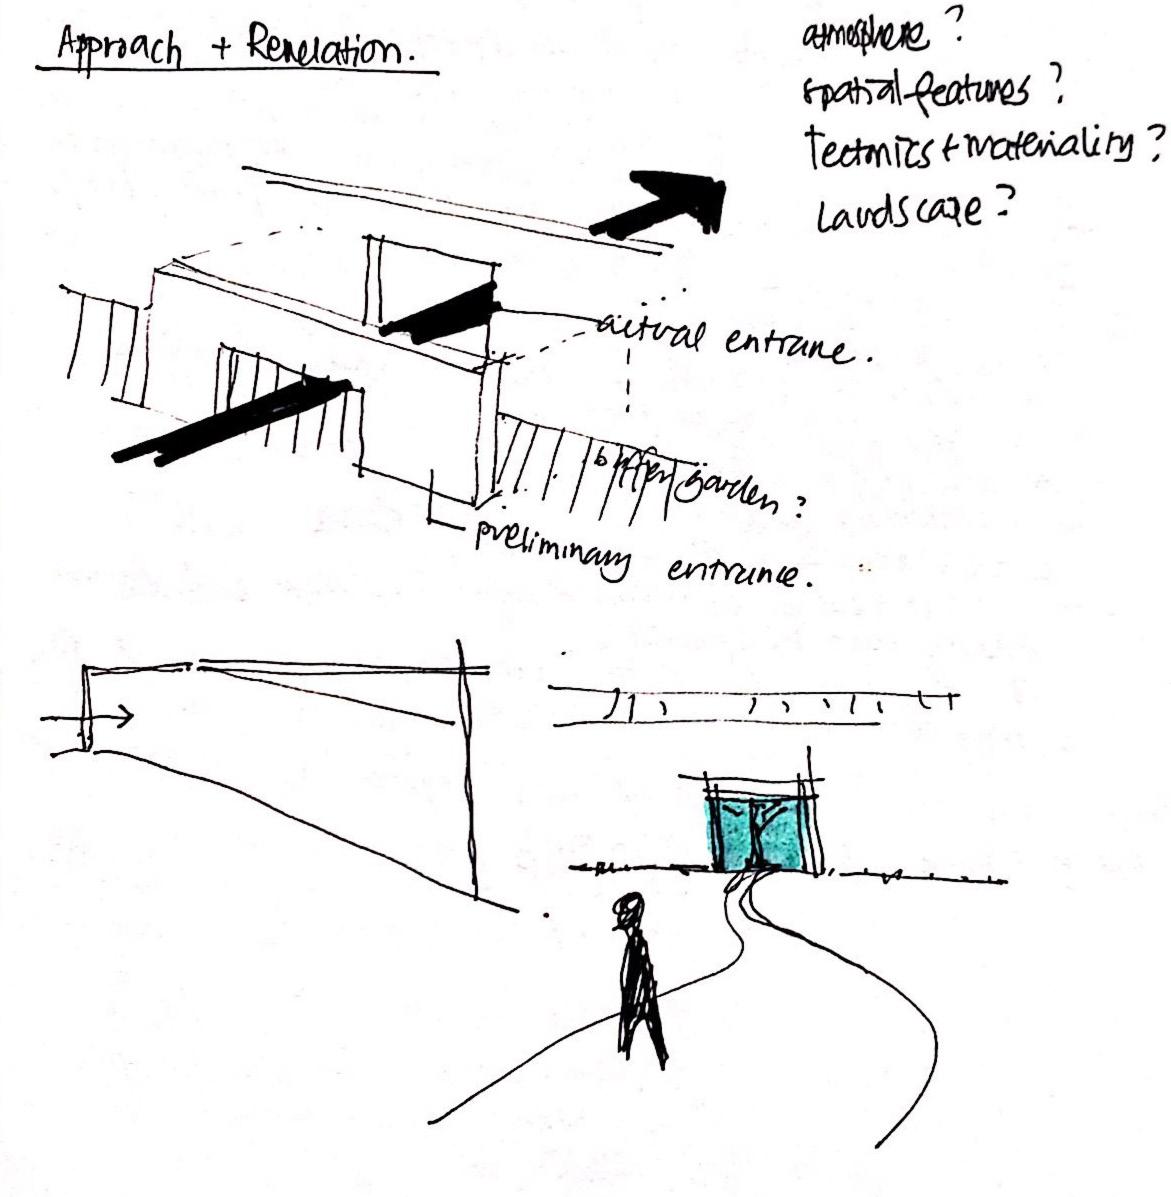 Approach + Revelation.
atmosphere?
spatial features?
Tectonics + materiality?
Landscape?
actual entrane.
buffer garden?
preliminary entrance.